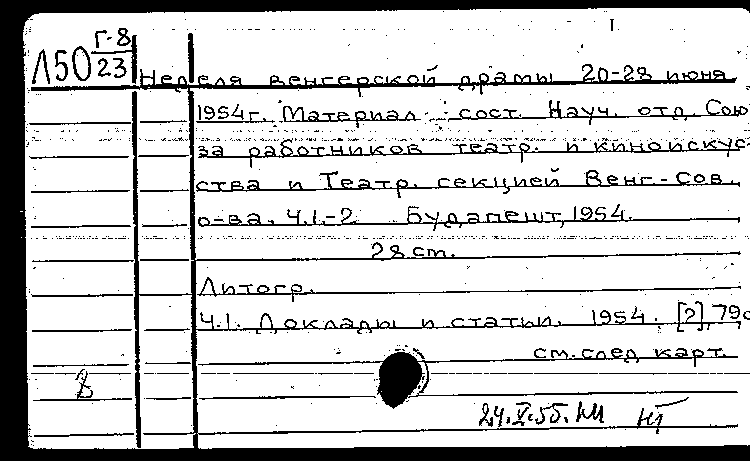 I
Л50 Г-8
23
Неделя венгерской драмы 20-28 июня
1954г. Материал сост. Науч. отд. Сою-
за работников театр. и киноискус-
ства и Театр. секцией Венг.-Сов.
о-ва. Ч.1.-2. Будапешт, 1954.
28 см.
Литогр.
Ч.1. Доклады и статьи. 1954. [2], 79с
см. след карт.
В
24.X.55. НТ